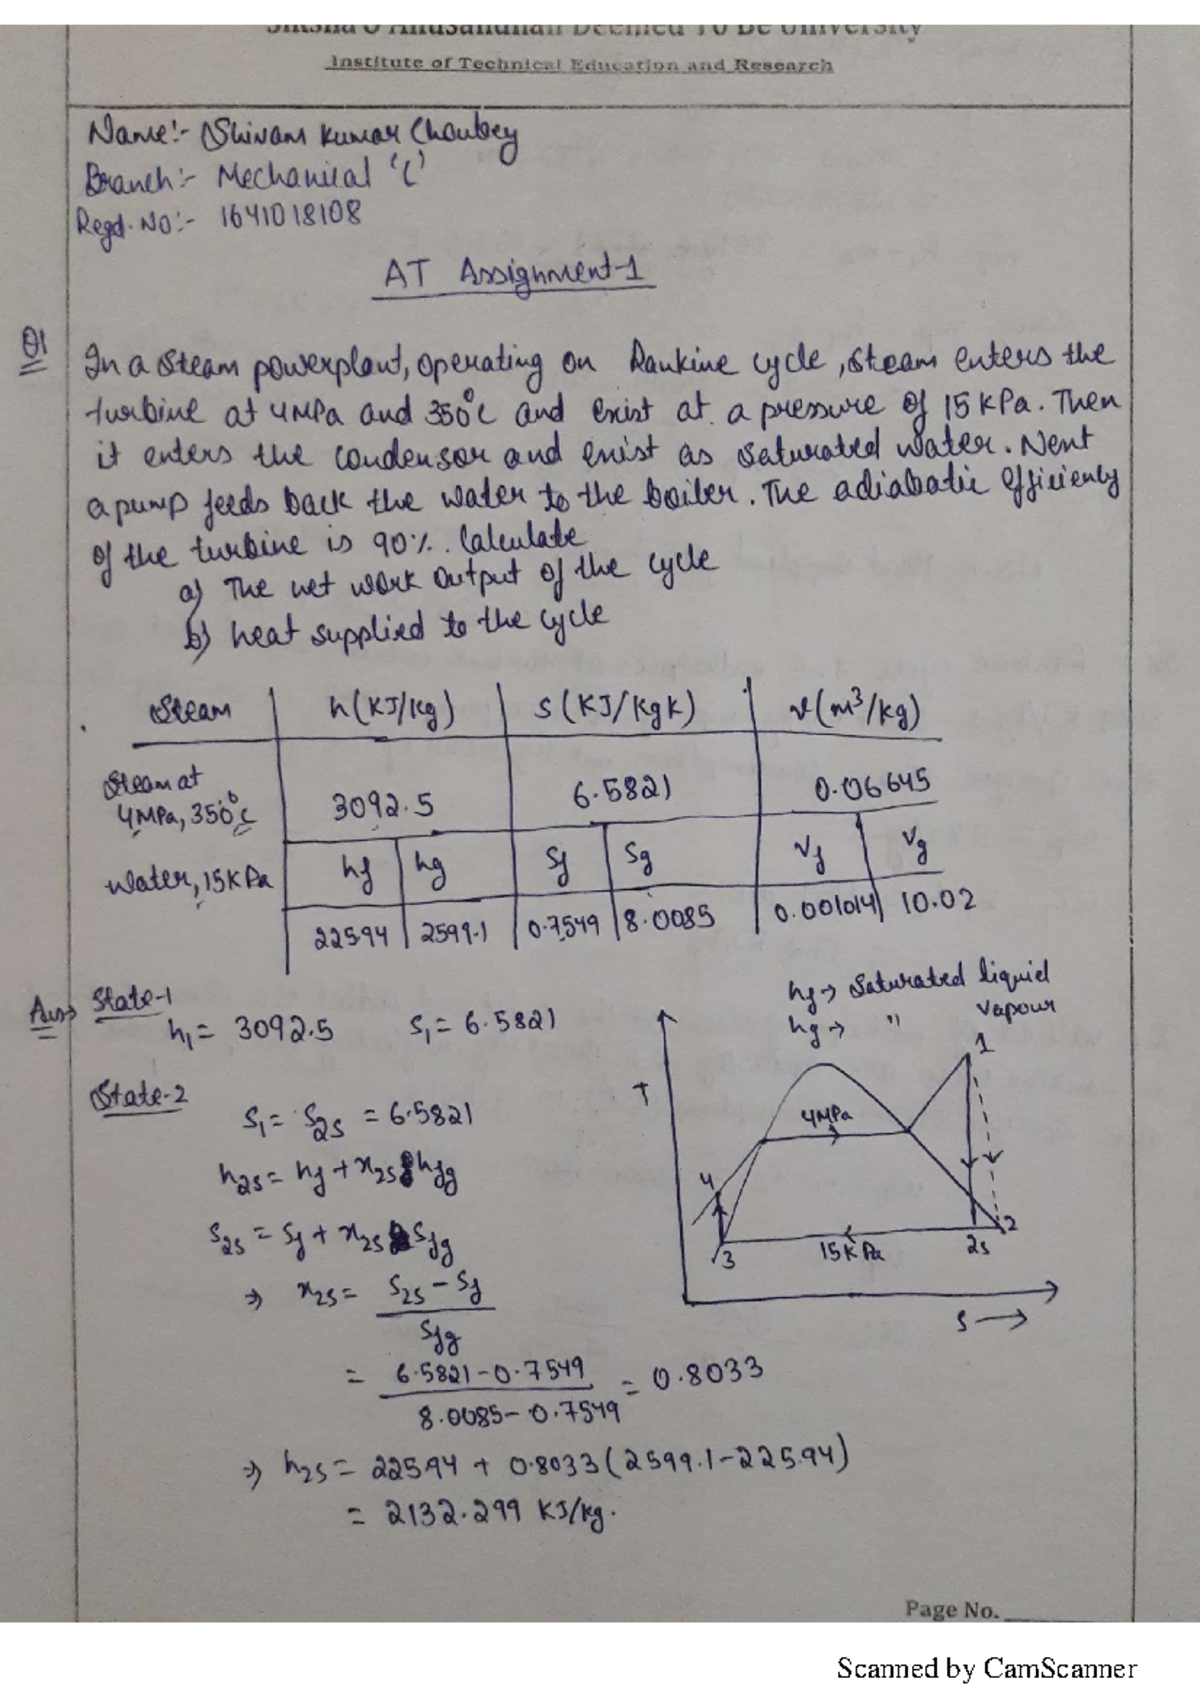 Siksha O Anusandhan Deemed To Be University
Institute of Technical Education and Research
Name:- Shivam Kumar Choubey
Branch:- Mechanical 'C'
Regd. No:- 1641018108
AT Assignment-1
Q1 In a Steam powerplant, operating on Rankine cycle, steam enters the
turbine at 4MPa and 350°C and exist at a pressure of 15 KPa. Then
it enters the condensor and exist as saturated water. Next
a pump feeds back the water to the boiler. The adiabatic efficiency
of the turbine is 90%. Calculate
a) The net work output of the cycle
b) heat supplied to the cycle
Steam h (KJ/kg) s (KJ/kgK) v (m³/kg)
Steam at
4MPa, 350°C 3092.5 6.5821 0.06645
Water, 15KPa hf hg Sf Sg Vf Vg
225.94 2599.1 0.7549 8.0085 0.001014 10.02
hf → Saturated liquid
hg → " vapour
Ans→ State-1
h₁ = 3092.5 S₁ = 6.5821
State-2
S₁ = S2s = 6.5821
h2s = hf + x2s hfg
S2s = Sf + x2s Sfg
⇒ x2s = S2s - Sf / Sfg
= 6.5821 - 0.7549 / 8.0085 - 0.7549 = 0.8033
⇒ h2s = 225.94 + 0.8033 (2599.1 - 225.94)
= 2132.299 KJ/kg.
T
1
4MPa
4
3
15KPa
2s
2
S →
Page No.
Scanned by CamScanner